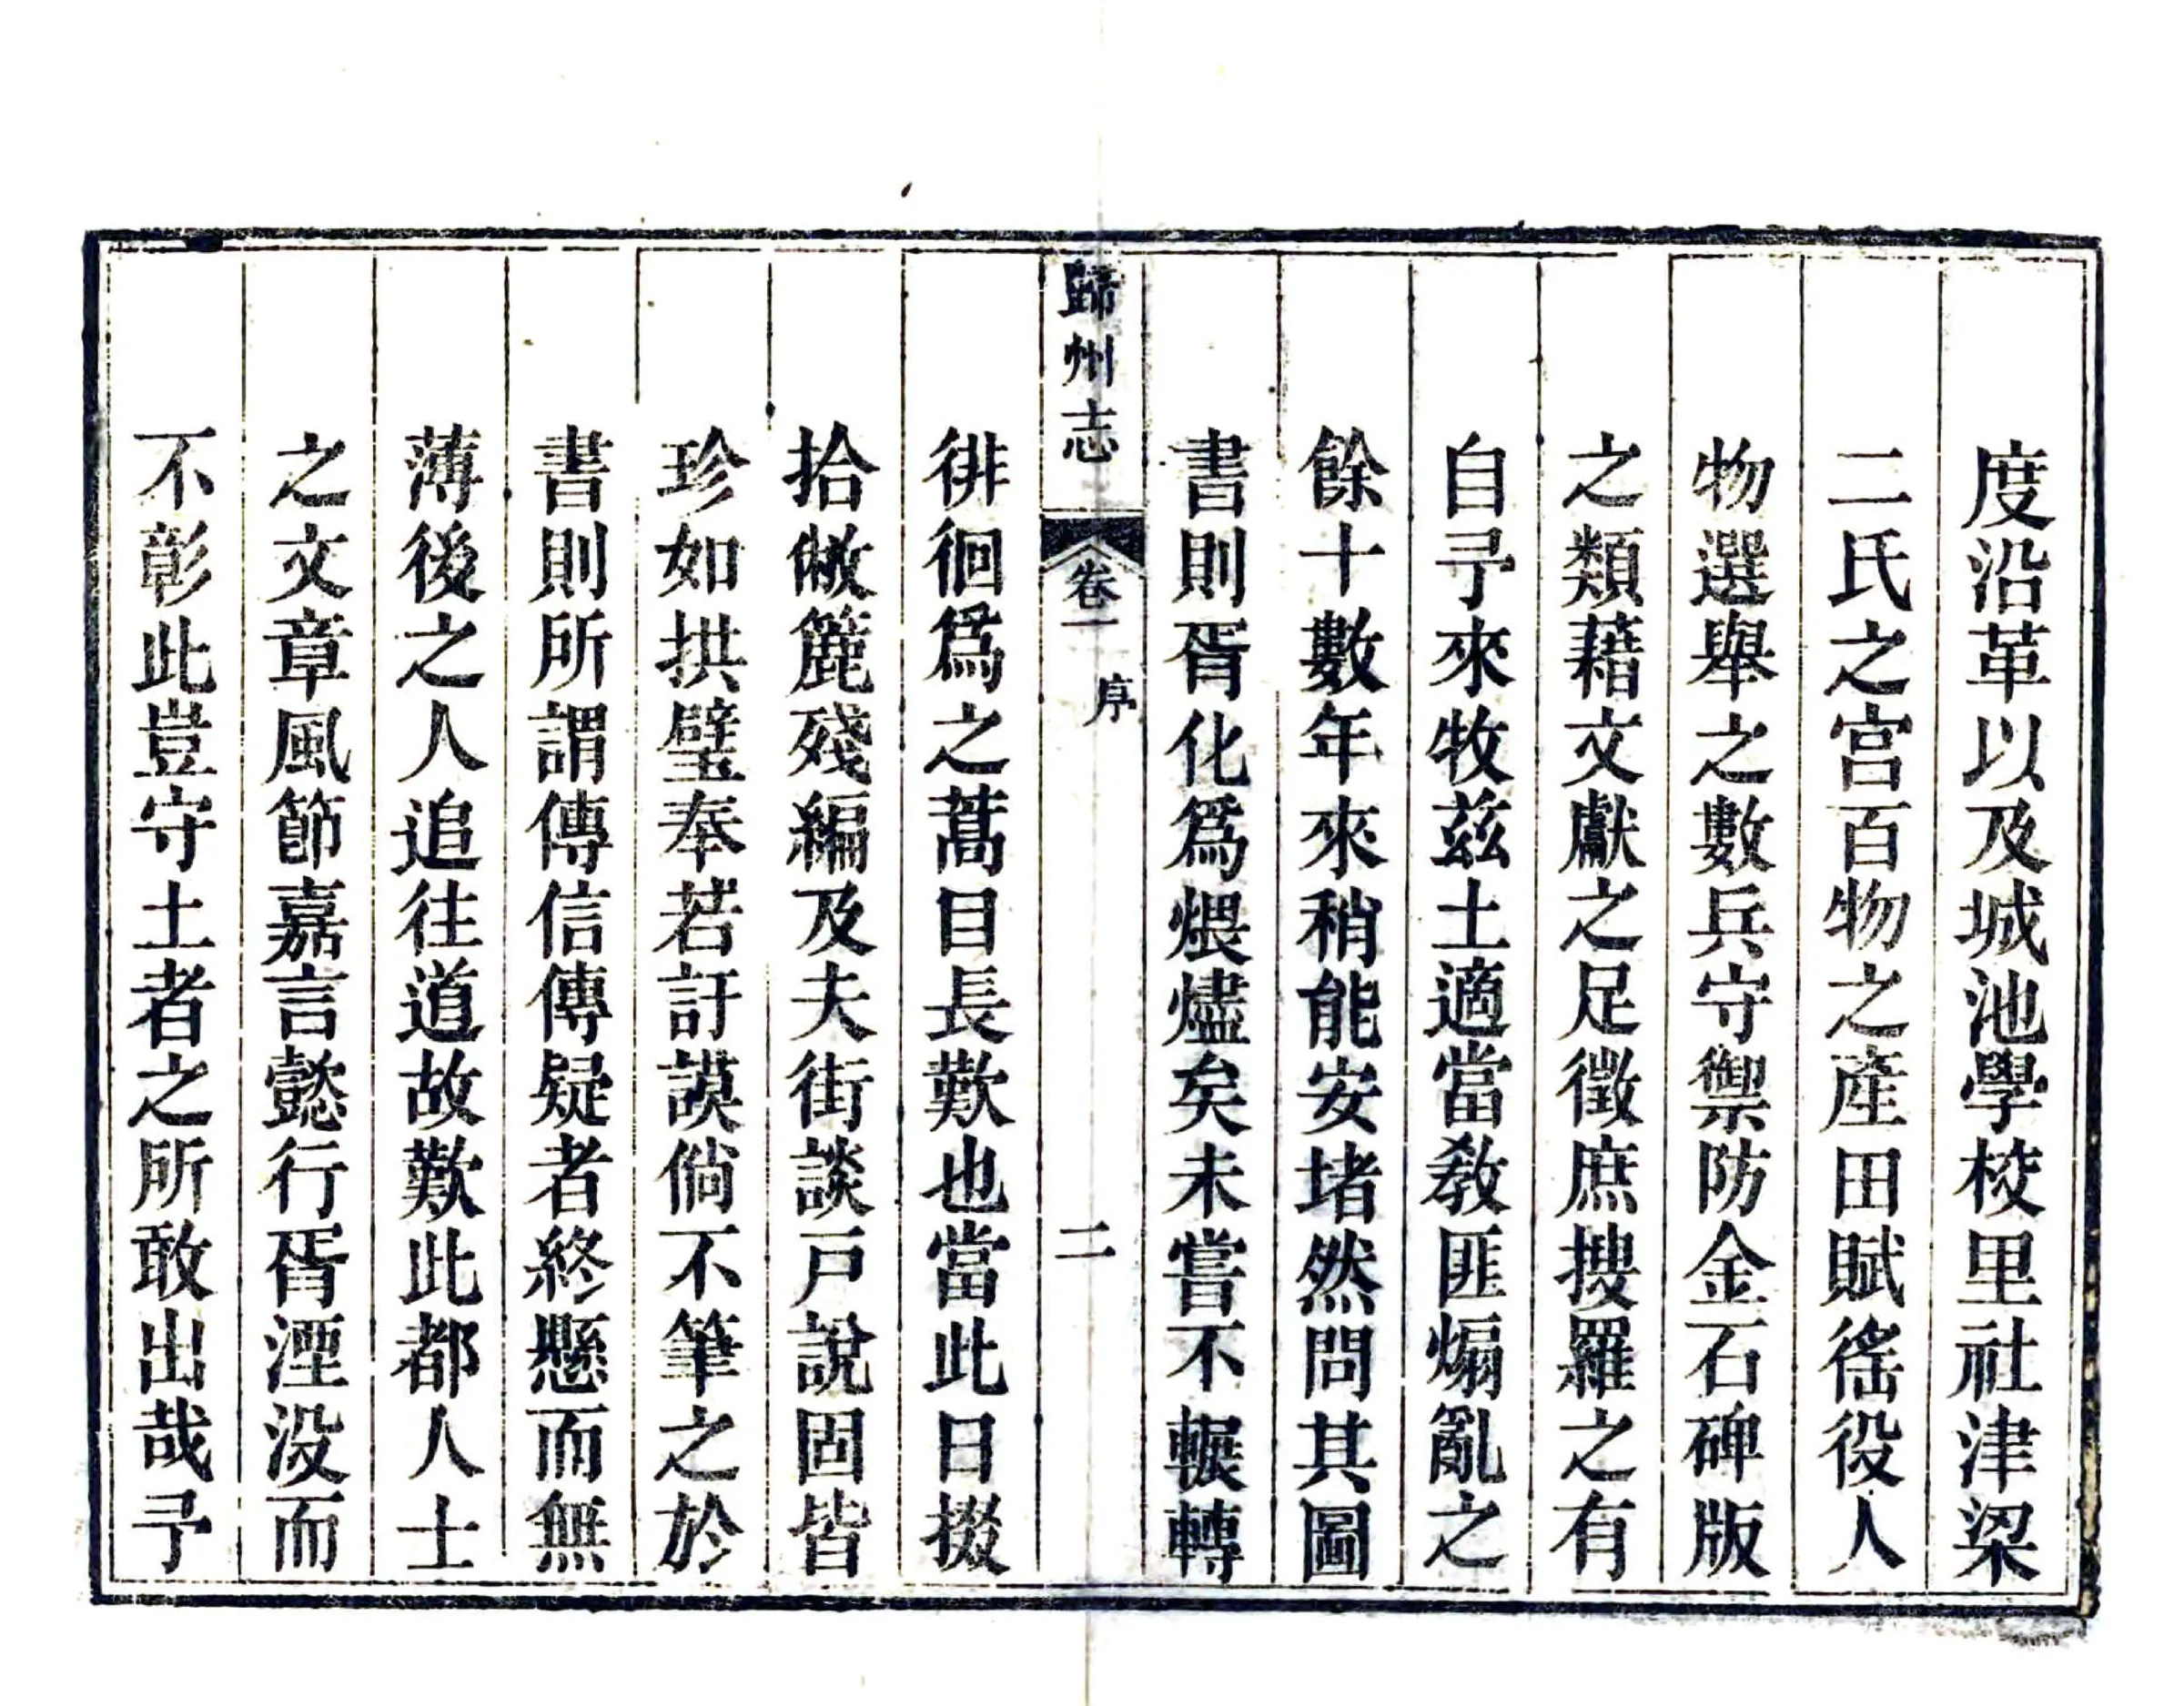 度沿革以及城池學校里社津梁
二氏之宫百物之產田賦徭役人
物選舉之數兵守禦防金石碑版
之類藉文獻之足徵庶搜羅之有
自予來牧兹土適當教匪煽亂之
餘十數年來稍能安堵然問其圖
書則胥化爲煨燼矣未嘗不輾轉
歸州志
卷一
序
二
徘徊爲之蒿目長歎也當此日掇
拾敝簏殘編及夫街談戸說固皆
珍如拱璧奉若訏謨倘不筆之於
書則所謂傳信傳疑者終懸而無
薄後之人追往道故歎此都人士
之文章風節嘉言懿行胥湮没而
不彰此豈守土者之所敢出哉予